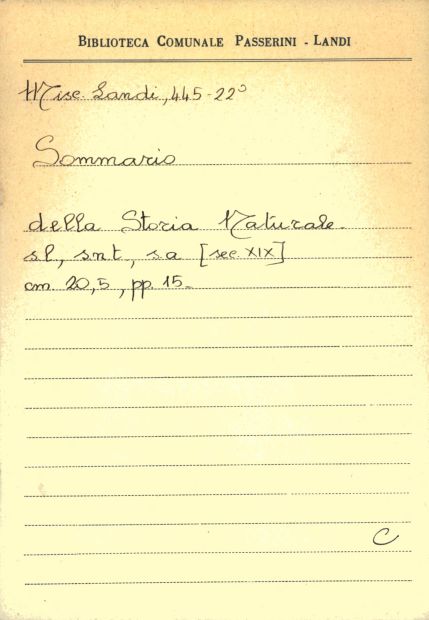 BIBLIOTECA COMUNALE PASSERINI - LANDI
Misc. Landi, 445-22°
Sommario
della Storia Naturale.
sl, snt, sa [sec. XIX]
cm. 20,5, pp. 15.
C